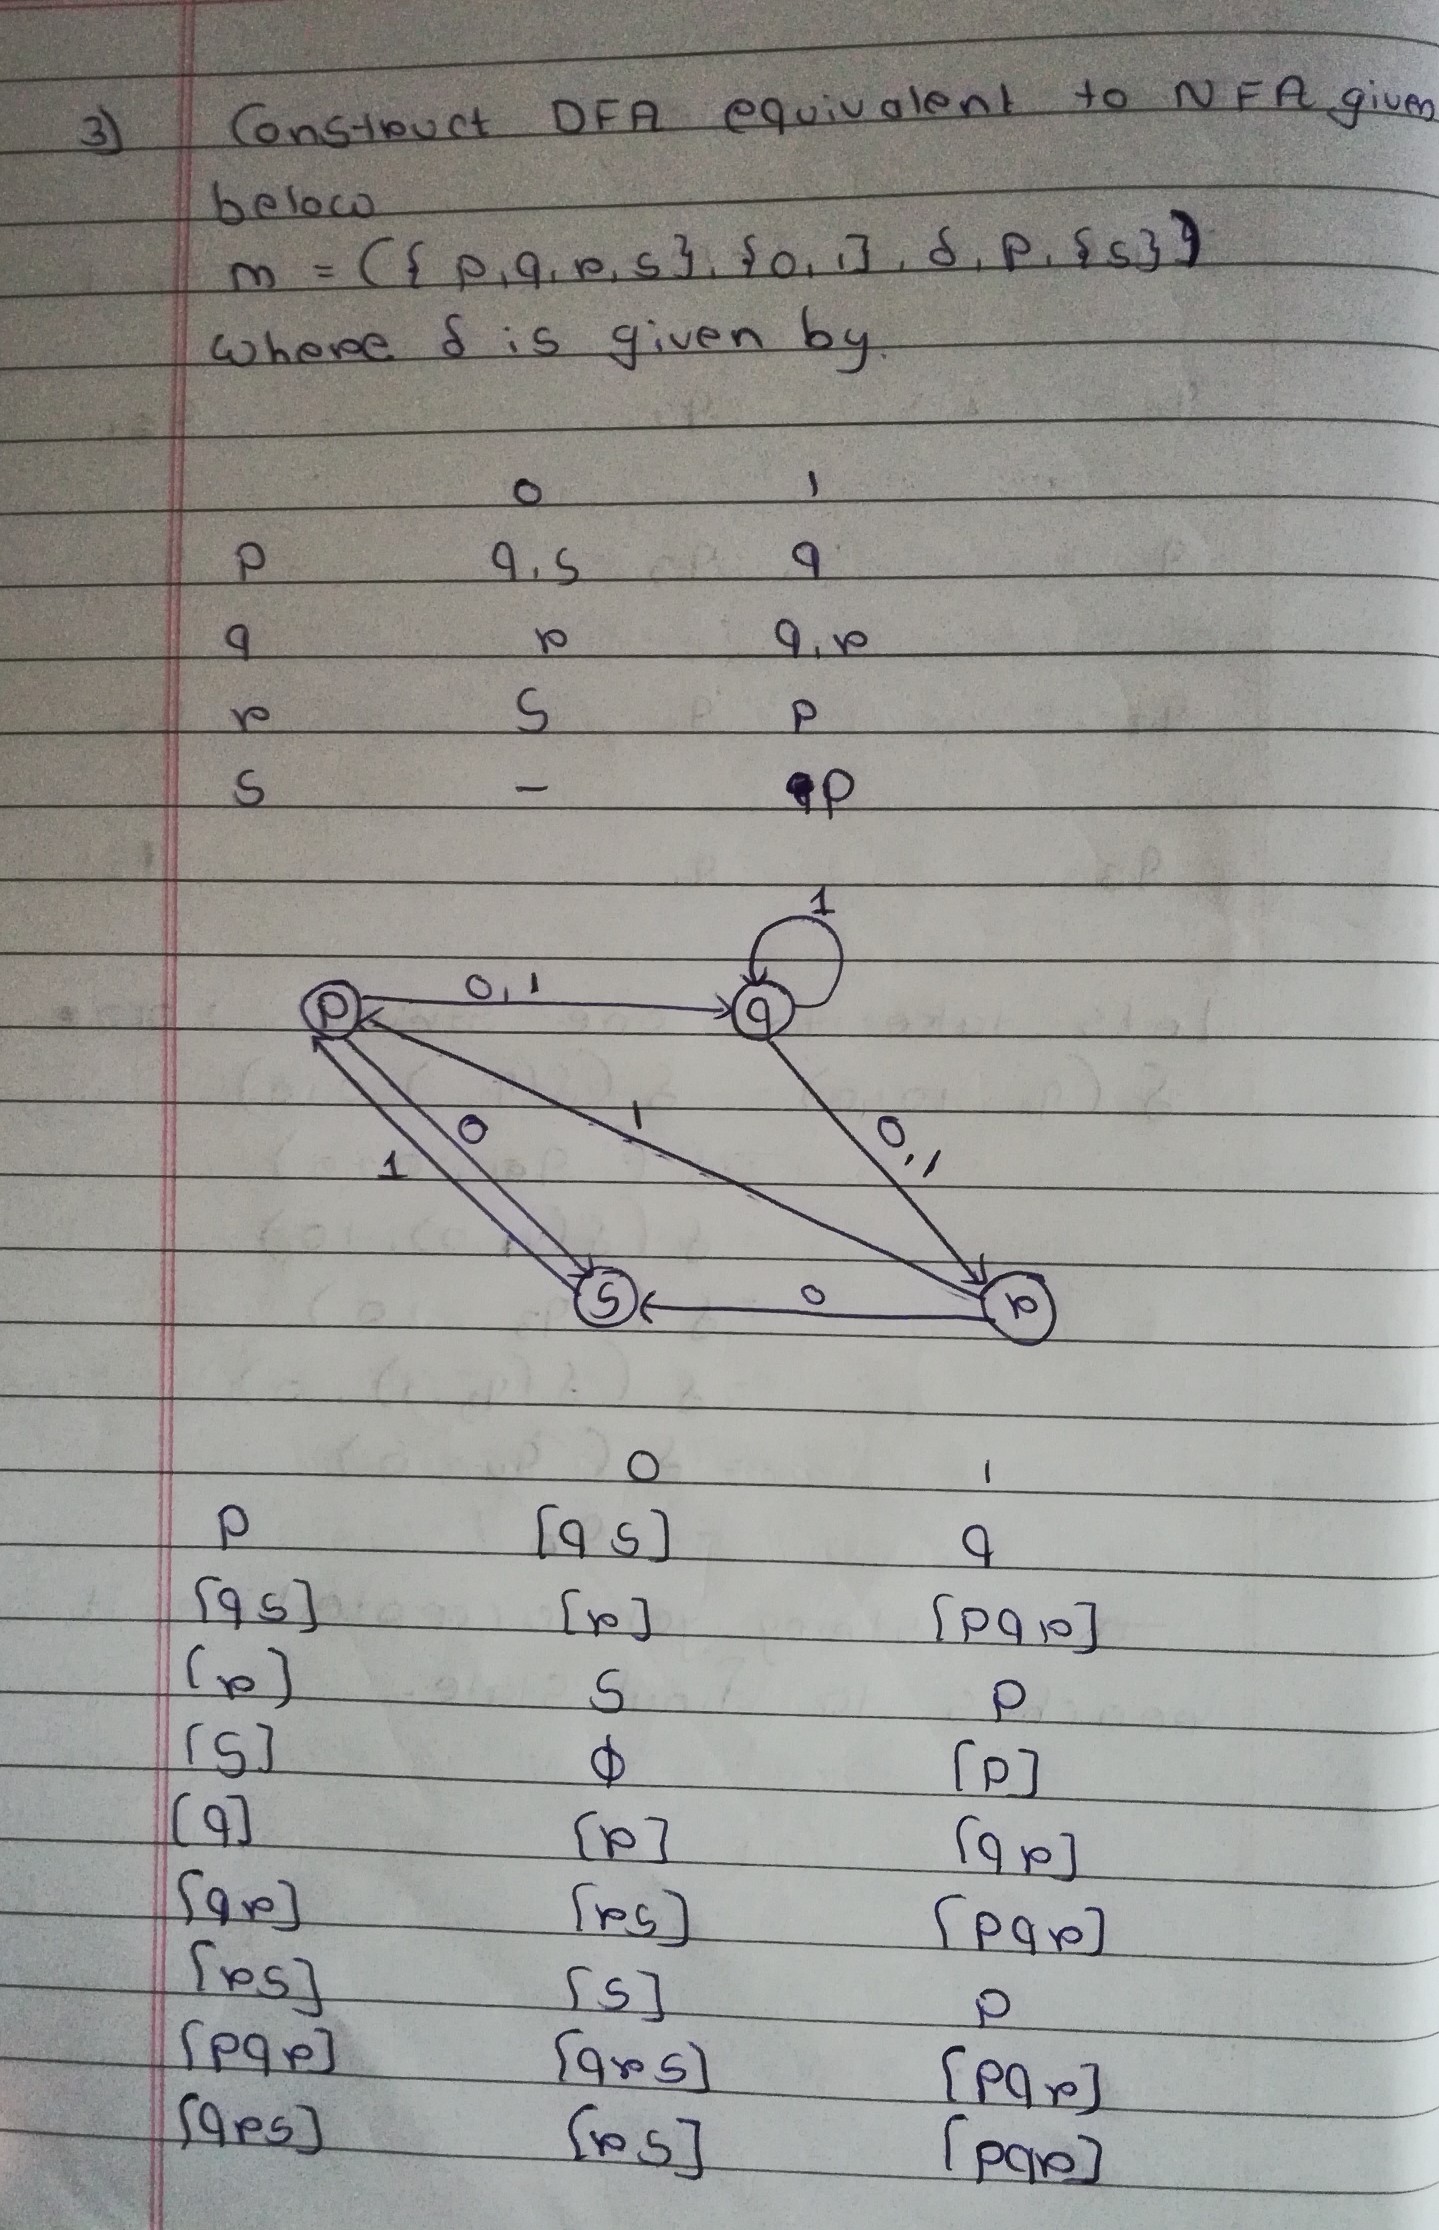 3) Construct DFA equivalent to NFA given
below
m = ({p,q,r,s}, {0,1}, δ, p, {s})
where δ is given by.
0 1
p q,s q
q r q,r
r S p
S - p
1
0,1
p q
0 1 0,1
1
S 0 r
0 1
p [q s] q
[q s] [r] [p q r]
[r] S p
[S] φ [p]
[q] [r] [q r]
[q r] [r s] [p q r]
[r s] [s] p
[p q r] [q r s] [p q r]
[q r s] [r s] [p q r]